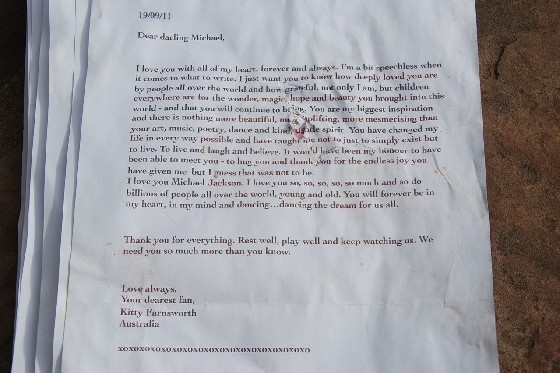 19/09/11
Dear darling Michael,
I love you with all of my heart, forever and always. I'm a bit speechless when
it comes to what to write. I just want you to know how deeply loved you are
by people all over the world and how grateful, not only I am, but children
everywhere are for the wonder, magic, hope and beauty you brought into this
world - and that you will continue to bring. You are my biggest inspiration
and there is nothing more beautiful, more uplifting, more mesmerising than
your art, music, poetry, dance and kind, gentle spirit. You have changed my
life in every way possible and have taught me not to just to simply exist but
to live. To live and laugh and believe. It would have been my honour to have
been able to meet you - to hug you and thank you for the endless joy you
have given me but I guess that was not to be.
I love you Michael Jackson. I love you so, so, so, so, so much and so do
billions of people all over the world, young and old. You will forever be in
my heart, in my mind and dancing...dancing the dream for us all.
Thank you for everything. Rest well, play well and keep watching us. We
need you so much more than you know.
Love always,
Your dearest fan,
Kitty Farnsworth
Australia
xoxoxoxoxoxoxoxoxoxoxoxoxoxoxoxoxo